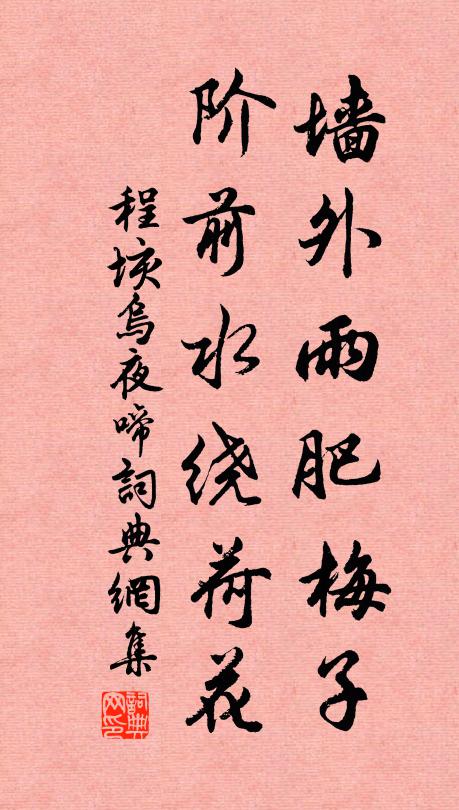 墙外雨肥梅子
阶前水绕荷花
程垓乌夜啼詞典網集
詞典网印